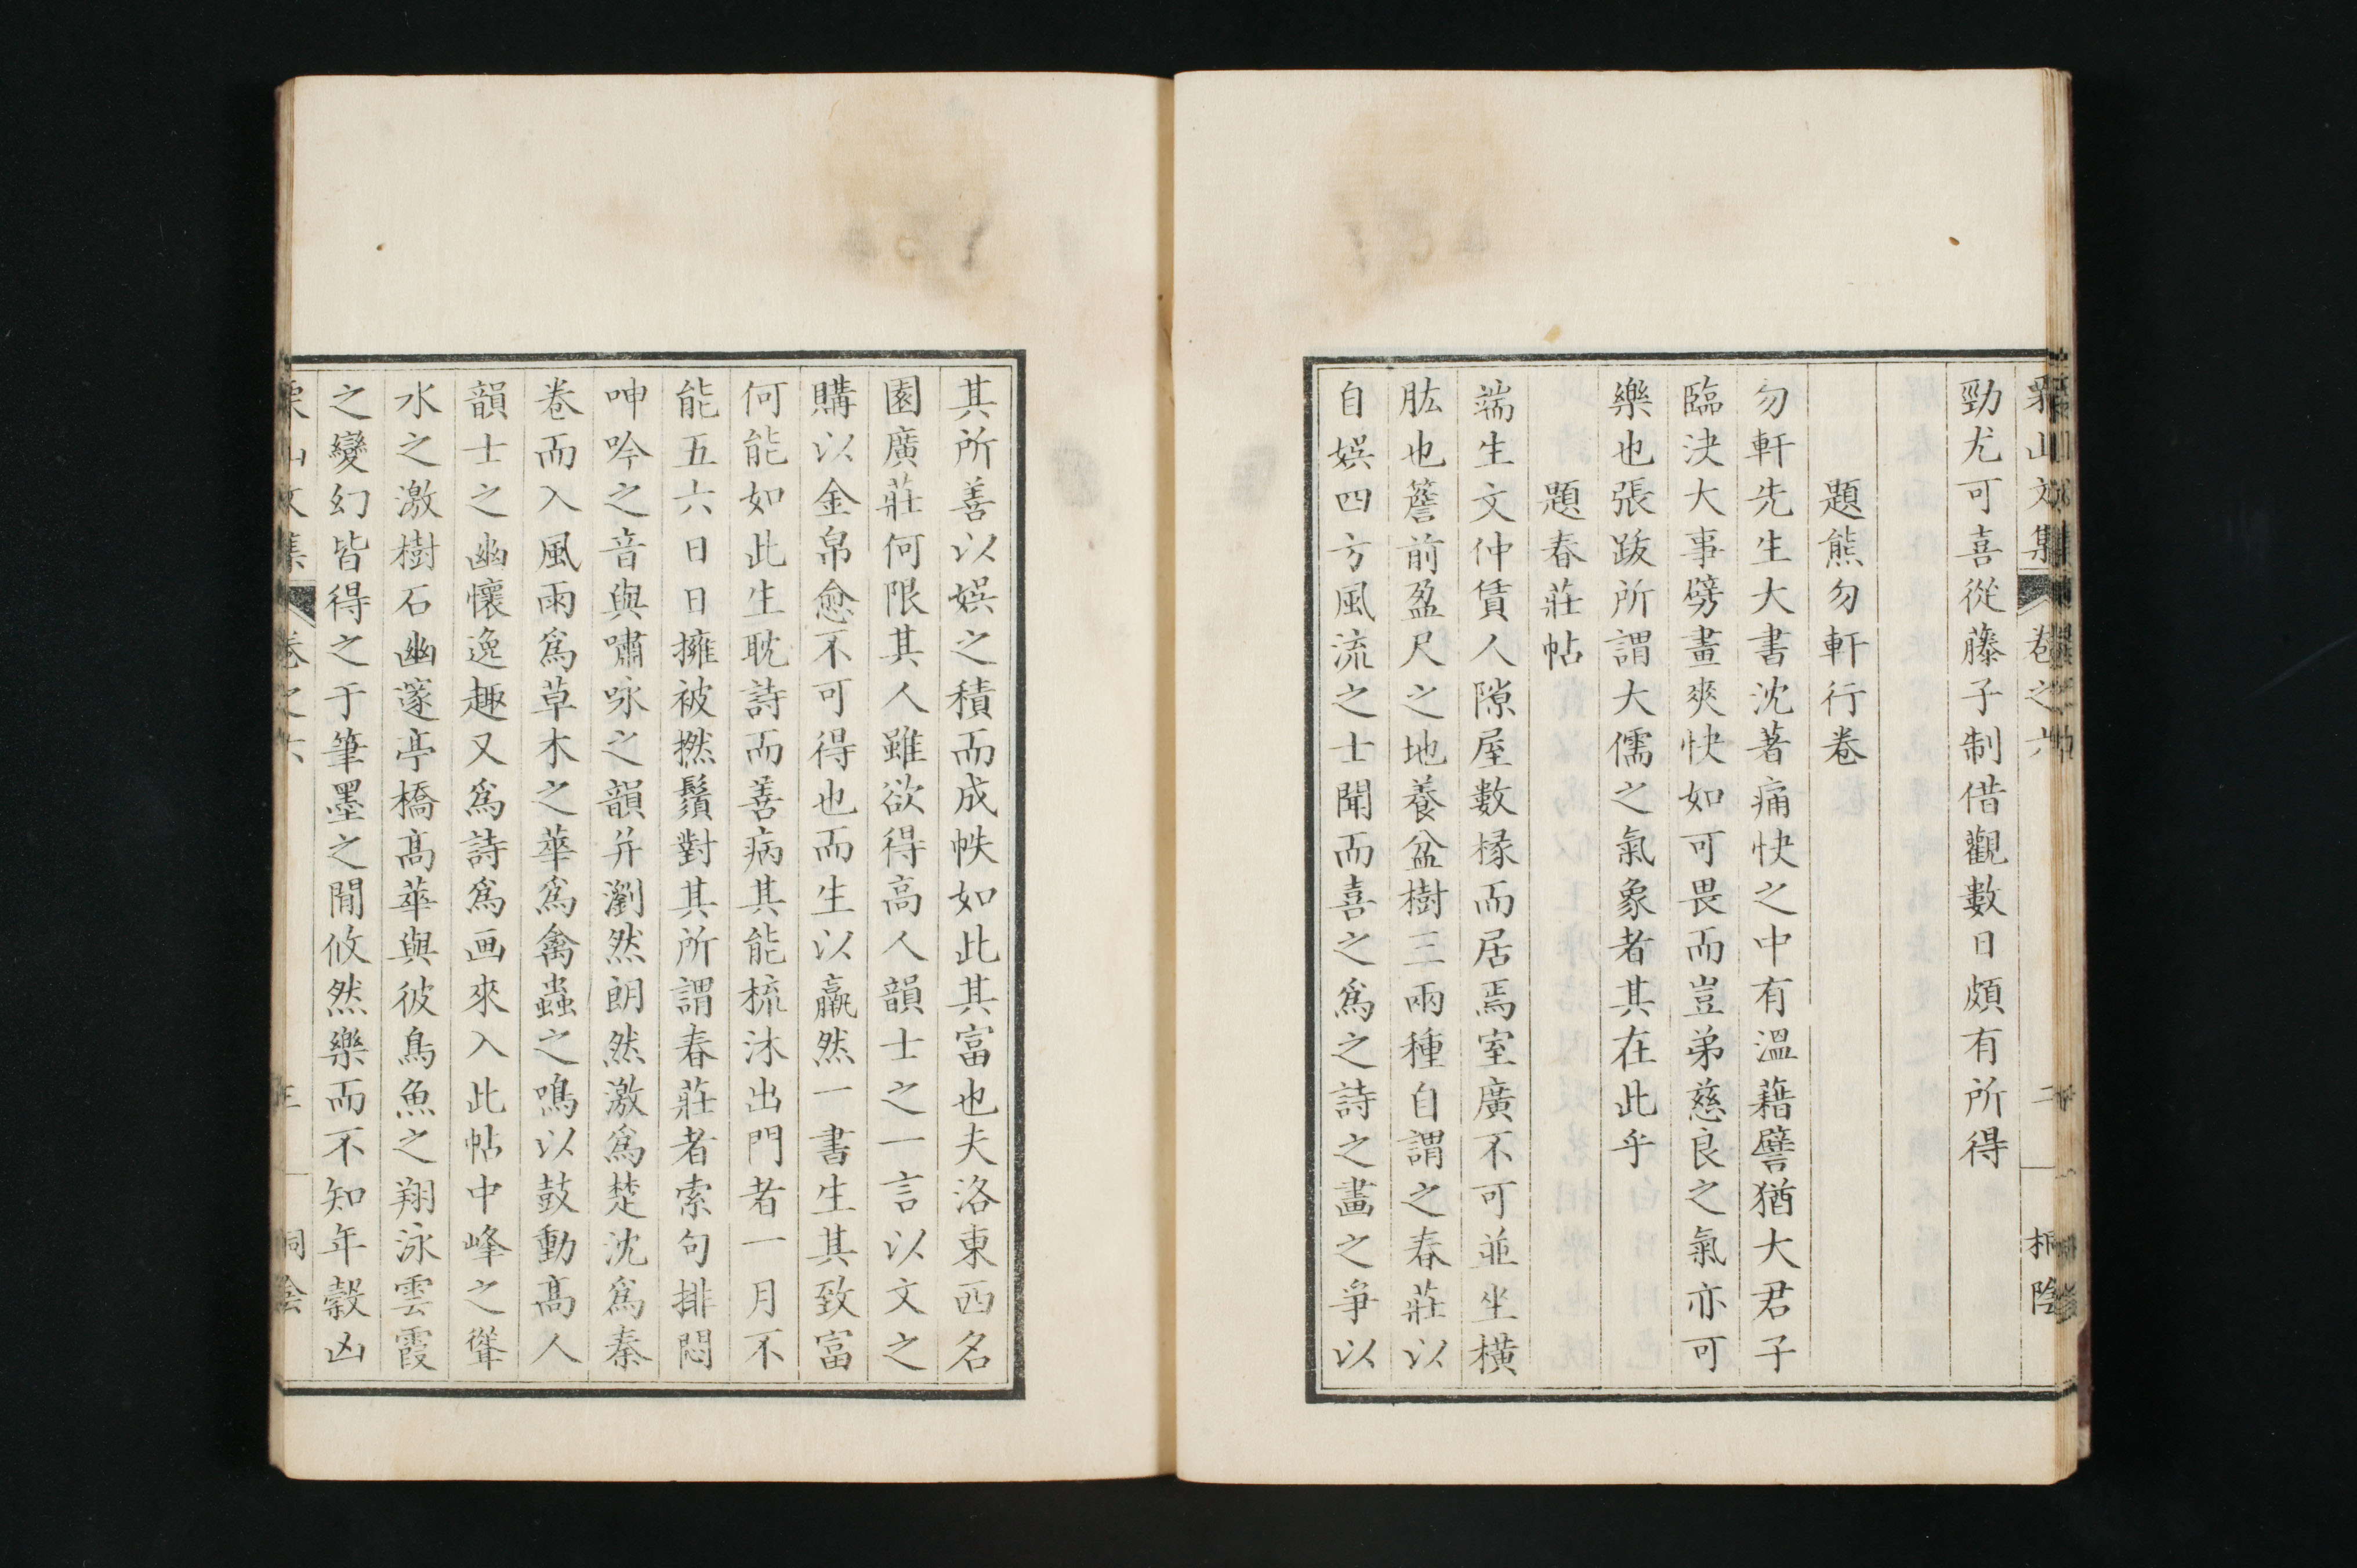 勁尤可喜從藤子制借觀數日頗有所得
題熊勿軒行卷
勿軒先生大書沈著痛快之中有溫藉譬猶大君子
臨決大事劈畫爽快如可畏而豈弟慈良之氣亦可
樂也張跋所謂大儒之氣象者其在此乎
題春莊帖
端生文仲賃人隙屋數椽而居焉室廣不可並坐橫
肱也簷前盈尺之地養盆樹三兩種自謂之春莊以
自娛四方風流之士聞而喜之爲之詩之畫之爭以
其所善以娛之積而成帙如此其富也夫洛東西名
園廣莊何限其人雖欲得高人韻士之一言以文之
購以金帛愈不可得也而生以羸然一書生其致富
何能如此生耽詩而善病其能梳沐出門者一月不
能五六日日擁被撚鬚對其所謂春莊者索句排悶
呻吟之音與嘯咏之韻并瀏然朗然激爲楚沈爲秦
卷而入風雨爲草木之華爲禽蟲之鳴以鼓動高人
韻士之幽懷逸趣又爲詩爲画來入此帖中峰之聳
水之激樹石幽邃亭橋高華與彼鳥魚之翔泳雲霞
之變幻皆得之于筆墨之間攸然樂而不知年穀凶
栗山文集 卷之六 三 桐陰